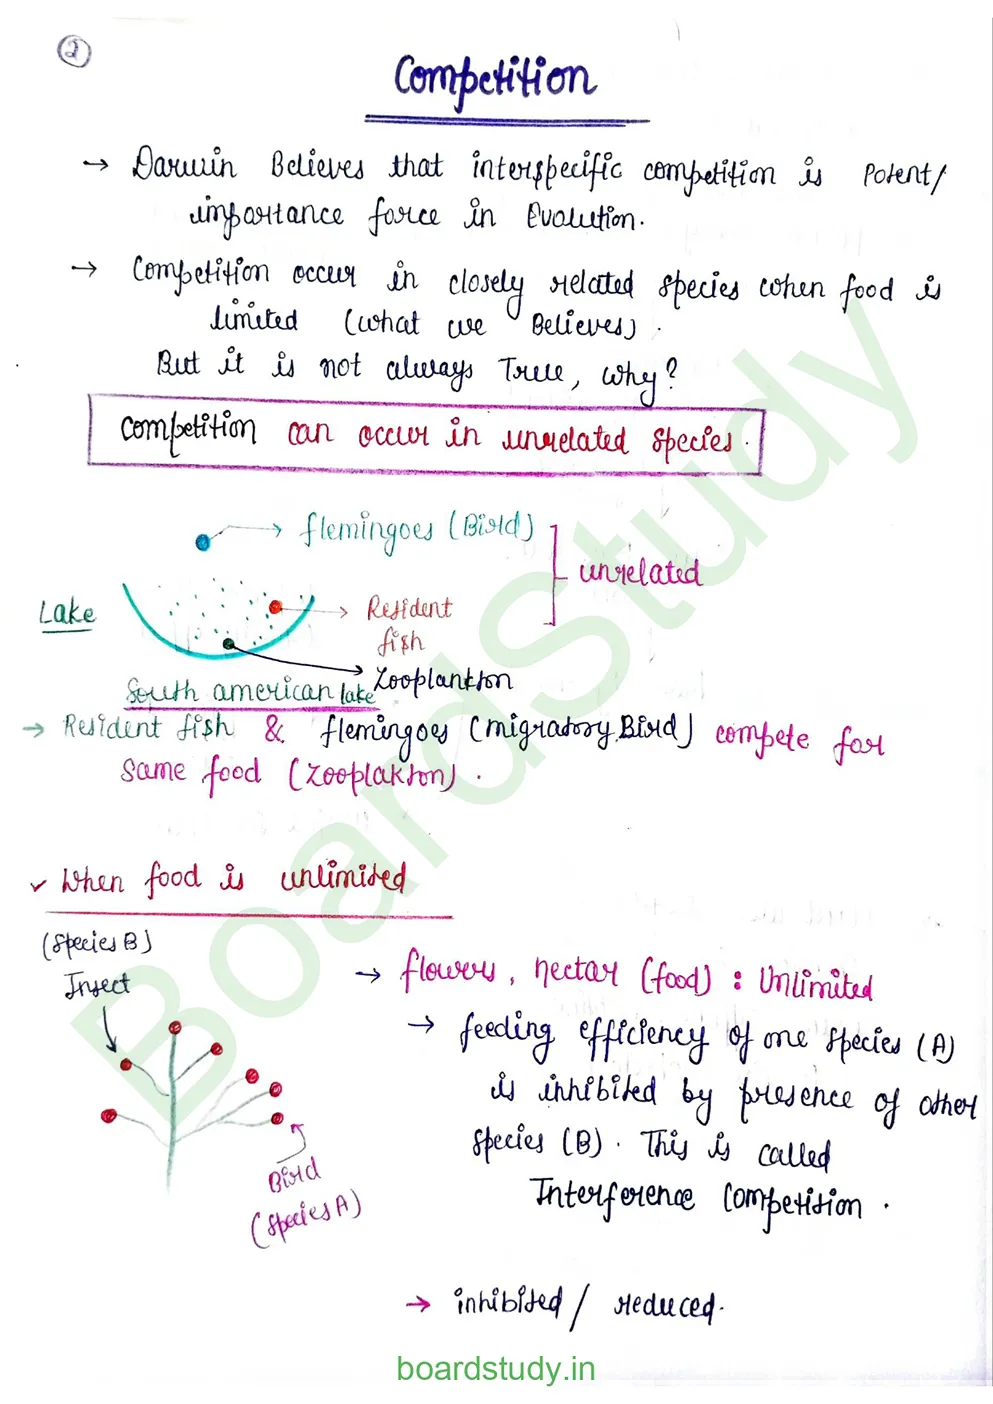 2
Competition
→ Darwin Believes that interspecific competition is Potent/
importance force in Evolution.
→ Competition occur in closely related species when food is
limited (what we Believes).
But it is not always True, why?
Competition can occur in unrelated species.
flemingoes (Bird)
unrelated
Lake
Resident
fish
Zooplankton
South american lake
→ Resident fish & flemingoes (migratory Bird) compete for
same food (Zooplakton).
✓ When food is unlimited
(species B)
Insect
→ flowers, nectar (food) : Unlimited
→ feeding efficiency of one species (A)
is inhibited by presence of other
species (B). This is called
Interference Competition.
Bird
(species A)
→ inhibited / reduced.
BoardStudy
boardstudy.in